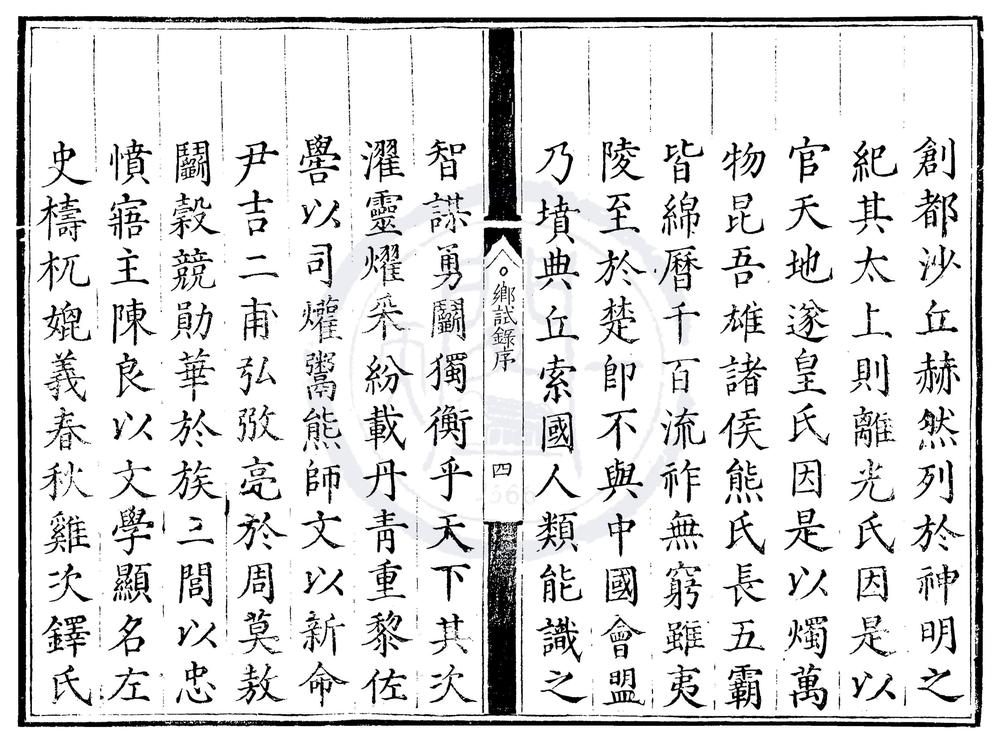 創都沙丘赫然列於神明之
紀其太上則離光氏因是以
官天地遂皇氏因是以燭萬
物昆吾雄諸侯熊氏長五霸
皆綿曆千百流祚無窮雖夷
陵至於楚卽不與中國會盟
乃墳典丘索國人類能識之
鄉試錄序
四
智謀勇鬭獨衡乎天下其次
濯靈燿采紛載丹青重黎佐
嚳以司爟鬻熊師文以新命
尹吉二甫弘敃亮於周莫敖
鬭穀競勛華於族三閭以忠
憤寤主陳良以文學顯名左
史檮杌媲義春秋雞次鐸氏